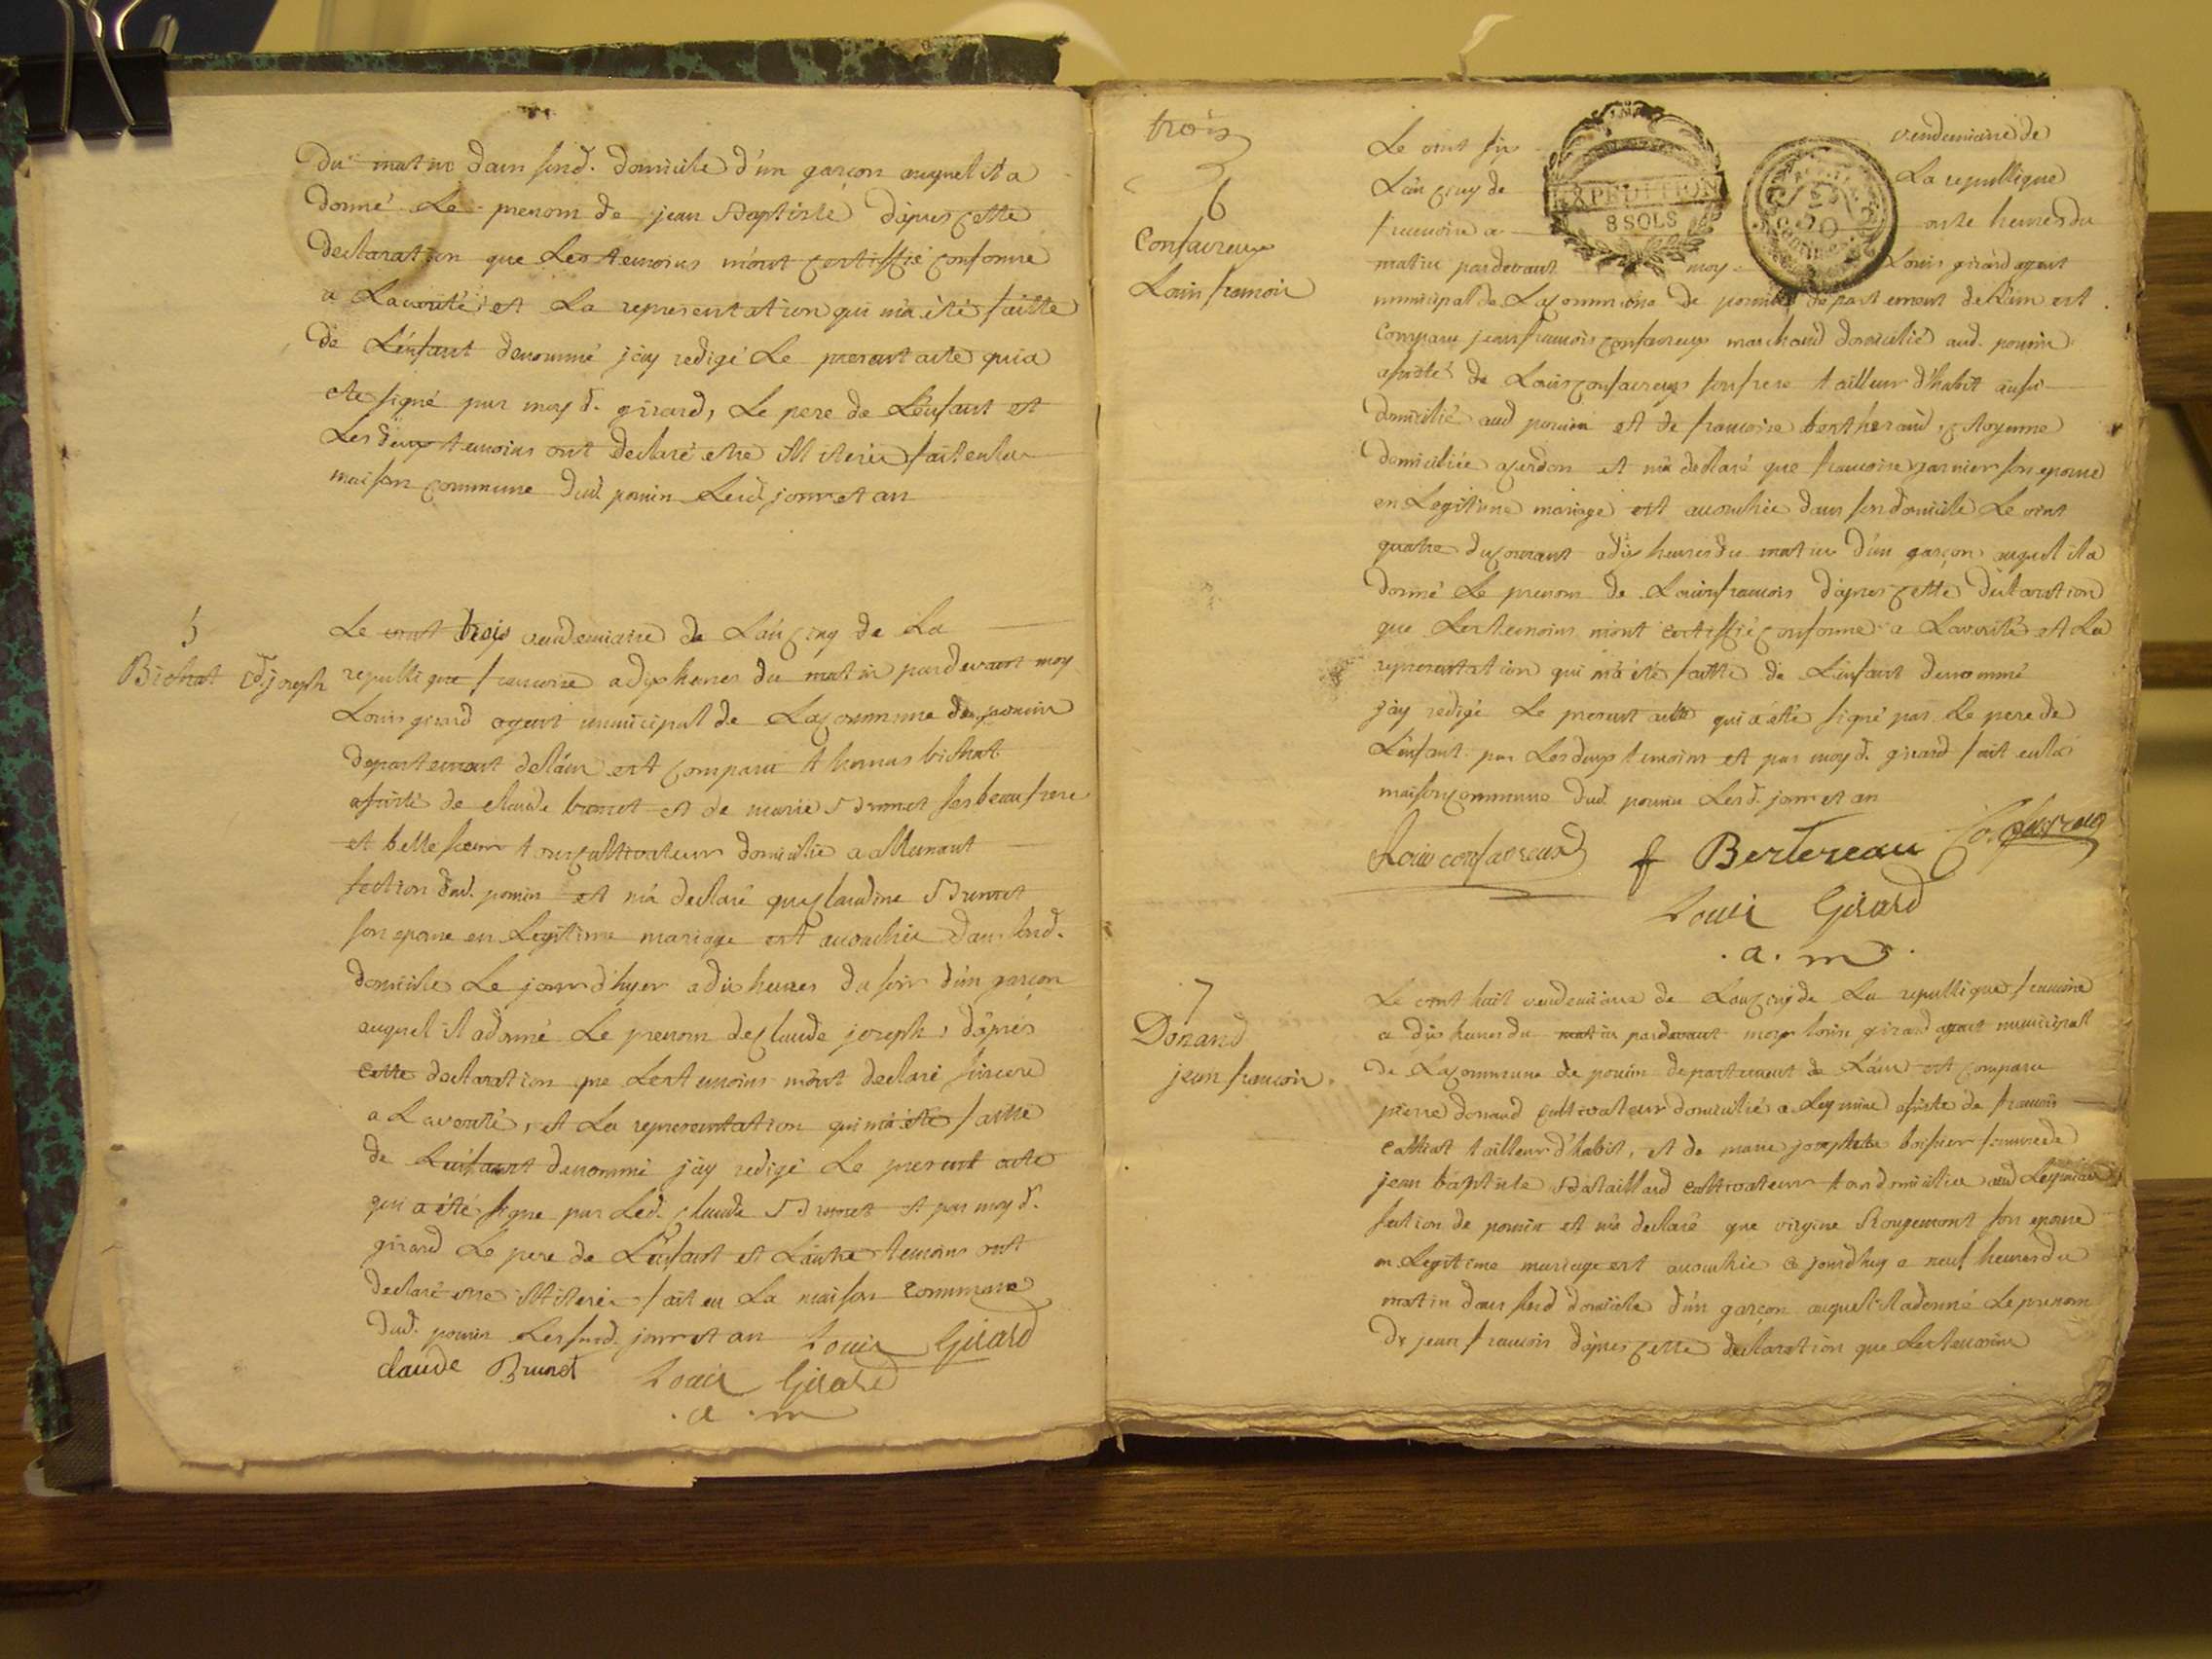 du matin dans sond. domicile d'un garçon auquel il a
donné Le prenom de jean Baptiste d'apres cette
declaration que Les temoins m'ont certiffié conforme
a Laverité et La representation qui m'a été faitte
de L'enfant denommé j'ay redigé Le present acte qui a
ete signé par moy d. girard, Le pere de L'enfant et
Les deux temoins ont declaré etre illiteré fait en la
maison commune dud. poncin Lesd. jour et an
5
Bichat Cd. joseph
Le vint trois vendemiaire de L'an cinq de La
republique francoise a dix heures du matin pardevant moy
Louis girard agent municipal de La commune de poncin
departement de l'ain est comparu thomas bichat
assisté de claude brunet et de marie Brunet ses beau frere
et belle soeur tous cultivateurs domicilié a allemant
section dud. poncin et m'a declaré que claudine Brunet
son epouse en Legitime mariage est accouchée dans sond.
domicile Le jour d'hyer a dix heures du soir d'un garçon
auquel il a donné Le prenom de claude joseph, d'après
cette declaration que Les temoins m'ont declaré sincere
a La verité, et La representation qui m'a été faitte
de L'enfant denommé j'ay redigé Le present acte
qui a été signé par Led. claude Brunet et par moy d.
girard Le pere de L'enfant et L'autre temoins ont
declaré etre illiteré fait en La maison commune
dud. poncin Les susd. jour et an Louis Girard
claude Brunet Louis Girard
. a . m
trois
3
6
Confavreux
Louis francois
Le vint six vendemiaire de
L'an cinq de La republique
francoise a onze heures du
EXPEDITION
8 SOLS
50
centimes
matin pardevant moy Louis girard agent
municipal de La commune de poncin departement de L'ain est
comparu jean francois confavreux marchand domicilié aud. poncin
assisté de Louis confavreux son frere tailleur d'habit aussi
domicilié aud poncin et de francoise bertheraud, citoyenne
domiciliée a cerdon et m'a declaré que francoise garnier son epouse
en Legitime mariage est accouchée dans son domicile Le vint
quatre du courant a dix heures du matin d'un garçon auquel il a
donné Le prenom de Louis francois d'apres cette declaration
que Les temoins m'ont certiffié conforme a Laverité et La
representation qui m'a été faitte de L'enfant denommé
j'ay redigé Le present acte qui a été signé par Le pere de
L'enfant par Les deux temoins et par moy d. girard fait en la
maison commune dud. poncin Lesd. jour et an
Louis confavreux f Bertereau
Louis Girard
. a . m .
7
Donand
jean francois.
Le vint huit vendemiaire de L'an cinq de La republique francoise
a dix heures du matin pardevant moy Louis girard agent municipal
de La commune de poncin departement de L'ain est comparu
pierre donand cultivateur domicilié a Leymiac assisté de francois
cattiat tailleur d'habit, et de marie josephte boissier femme de
jean baptiste Bataillard cultivateur tous domicilié aud Leymiac
section de poncin et m'a declaré que virgine Rougemont son epouse
en Legitime mariage est accouchée ce jourdhuy a neuf heures du
matin dans sond domicile d'un garçon auquel il a donné Le prenom
de jean francois d'apres cette declaration que Les temoins